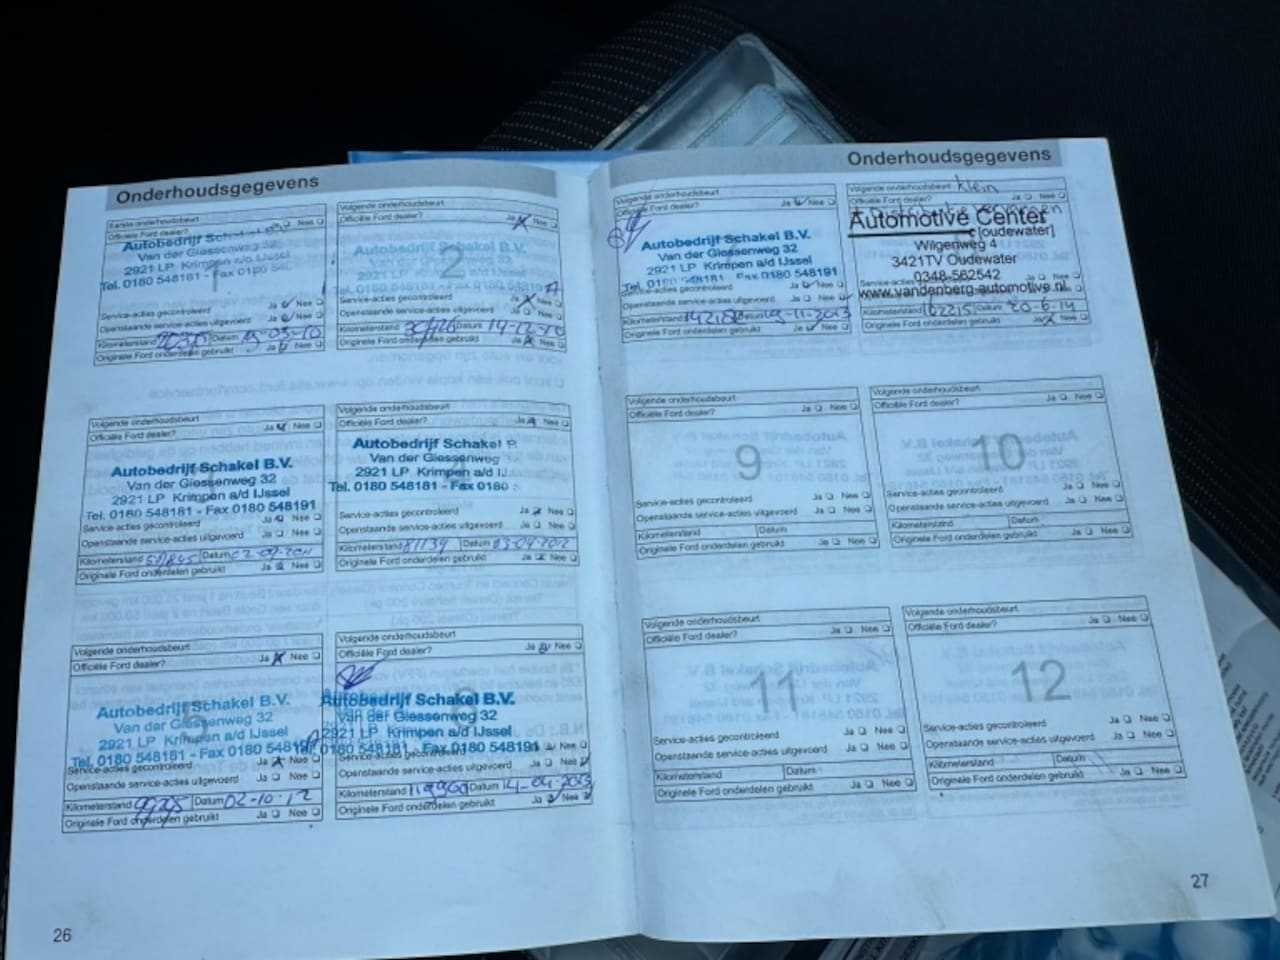 Onderhoudsgegevens
Eerste onderhoudsbeurt
Officiële Ford dealer? Nee
Autobedrijf Schakel
Van der Giessenweg 32
2921 LP Krimpen a/d IJssel
Tel. 0180 548181 - Fax 0180
1
Service-acties gecontroleerd Ja Nee
Openstaande service-acties uitgevoerd Ja Nee
Kilometerstand Datum 19-03-10
Originele Ford onderdelen gebruikt Ja Nee
Volgende onderhoudsbeurt
Officiële Ford dealer? Ja Nee
Autobedrijf Schakel B.V.
Van der Giessenweg 32
2921 LP Krimpen a/d IJssel
Tel. 0180 548181 - Fax 0180
2
Service-acties gecontroleerd Ja Nee
Openstaande service-acties uitgevoerd Ja Nee
Kilometerstand Datum 14-12-10
Originele Ford onderdelen gebruikt Ja Nee
Volgende onderhoudsbeurt
Officiële Ford dealer? Ja Nee
Autobedrijf Schakel B.V.
Van der Giessenweg 32
2921 LP Krimpen a/d IJssel
Tel. 0180 548181 - Fax 0180 548191
Service-acties gecontroleerd Ja Nee
Openstaande service-acties uitgevoerd Ja Nee
Kilometerstand 58845 Datum 02-09-2011
Originele Ford onderdelen gebruikt Ja Nee
Volgende onderhoudsbeurt
Officiële Ford dealer? Ja
Autobedrijf Schakel
Van der Giessenweg
2921 LP Krimpen a/d
Tel. 0180 548181 - Fax 0180
Service-acties gecontroleerd Ja Nee
Openstaande service-acties uitgevoerd Ja Nee
Kilometerstand 81139 Datum 03-04-2012
Originele Ford onderdelen gebruikt Ja Nee
Volgende onderhoudsbeurt
Officiële Ford dealer? Ja Nee
Autobedrijf Schakel B.V.
Van der Giessenweg 32
2921 LP Krimpen a/d IJssel
Tel. 0180 548181 - Fax 0180 548191
5
Service-acties gecontroleerd Ja Nee
Openstaande service-acties uitgevoerd Ja Nee
Kilometerstand Datum 02-10-12
Originele Ford onderdelen gebruikt Ja Nee
Volgende onderhoudsbeurt
Officiële Ford dealer? Ja Nee
Autobedrijf Schakel B.V.
Van der Giessenweg 32
2921 LP Krimpen a/d IJssel
0180 548181 - Fax 0180 548191
Service-acties gecontroleerd Nee
Openstaande service-acties uitgevoerd Ja Nee
Kilometerstand 119960 Datum 14-04-2013
Originele Ford onderdelen gebruikt Ja Nee
26
Onderhoudsgegevens
Volgende onderhoudsbeurt
Officiële Ford dealer? Ja Nee
Autobedrijf Schakel B.V.
Van der Giessenweg 32
2921 LP Krimpen a/d IJssel
Tel. 0180 548181 Fax 0180 548191
Service-acties gecontroleerd Ja Nee
Openstaande service-acties uitgevoerd Ja Nee
Kilometerstand Datum 19-11-2013
Originele Ford onderdelen gebruikt Ja Nee
Volgende onderhoudsbeurt klein
Ja Nee
Automotive Center
[oudewater]
Wilgenweg 4
3421TV Oudewater
0348-562542
www.vandenberg-automotive.nl
Kilometerstand 162215 Datum 20-6-14
Originele Ford onderdelen gebruikt Ja Nee
Volgende onderhoudsbeurt
Officiële Ford dealer? Ja Nee
9
Service-acties gecontroleerd Ja Nee
Openstaande service-acties uitgevoerd Ja Nee
Kilometerstand Datum
Originele Ford onderdelen gebruikt Ja Nee
Volgende onderhoudsbeurt
Officiële Ford dealer? Ja Nee
10
Service-acties gecontroleerd Ja Nee
Openstaande service-acties uitgevoerd Ja Nee
Kilometerstand Datum
Originele Ford onderdelen gebruikt Ja Nee
Volgende onderhoudsbeurt
Officiële Ford dealer? Ja Nee
11
Service-acties gecontroleerd Ja Nee
Openstaande service-acties uitgevoerd Ja Nee
Kilometerstand Datum
Originele Ford onderdelen gebruikt Ja Nee
Volgende onderhoudsbeurt
Officiële Ford dealer? Ja Nee
12
Service-acties gecontroleerd Ja Nee
Openstaande service-acties uitgevoerd Ja Nee
Kilometerstand Datum
Originele Ford onderdelen gebruikt Ja Nee
27